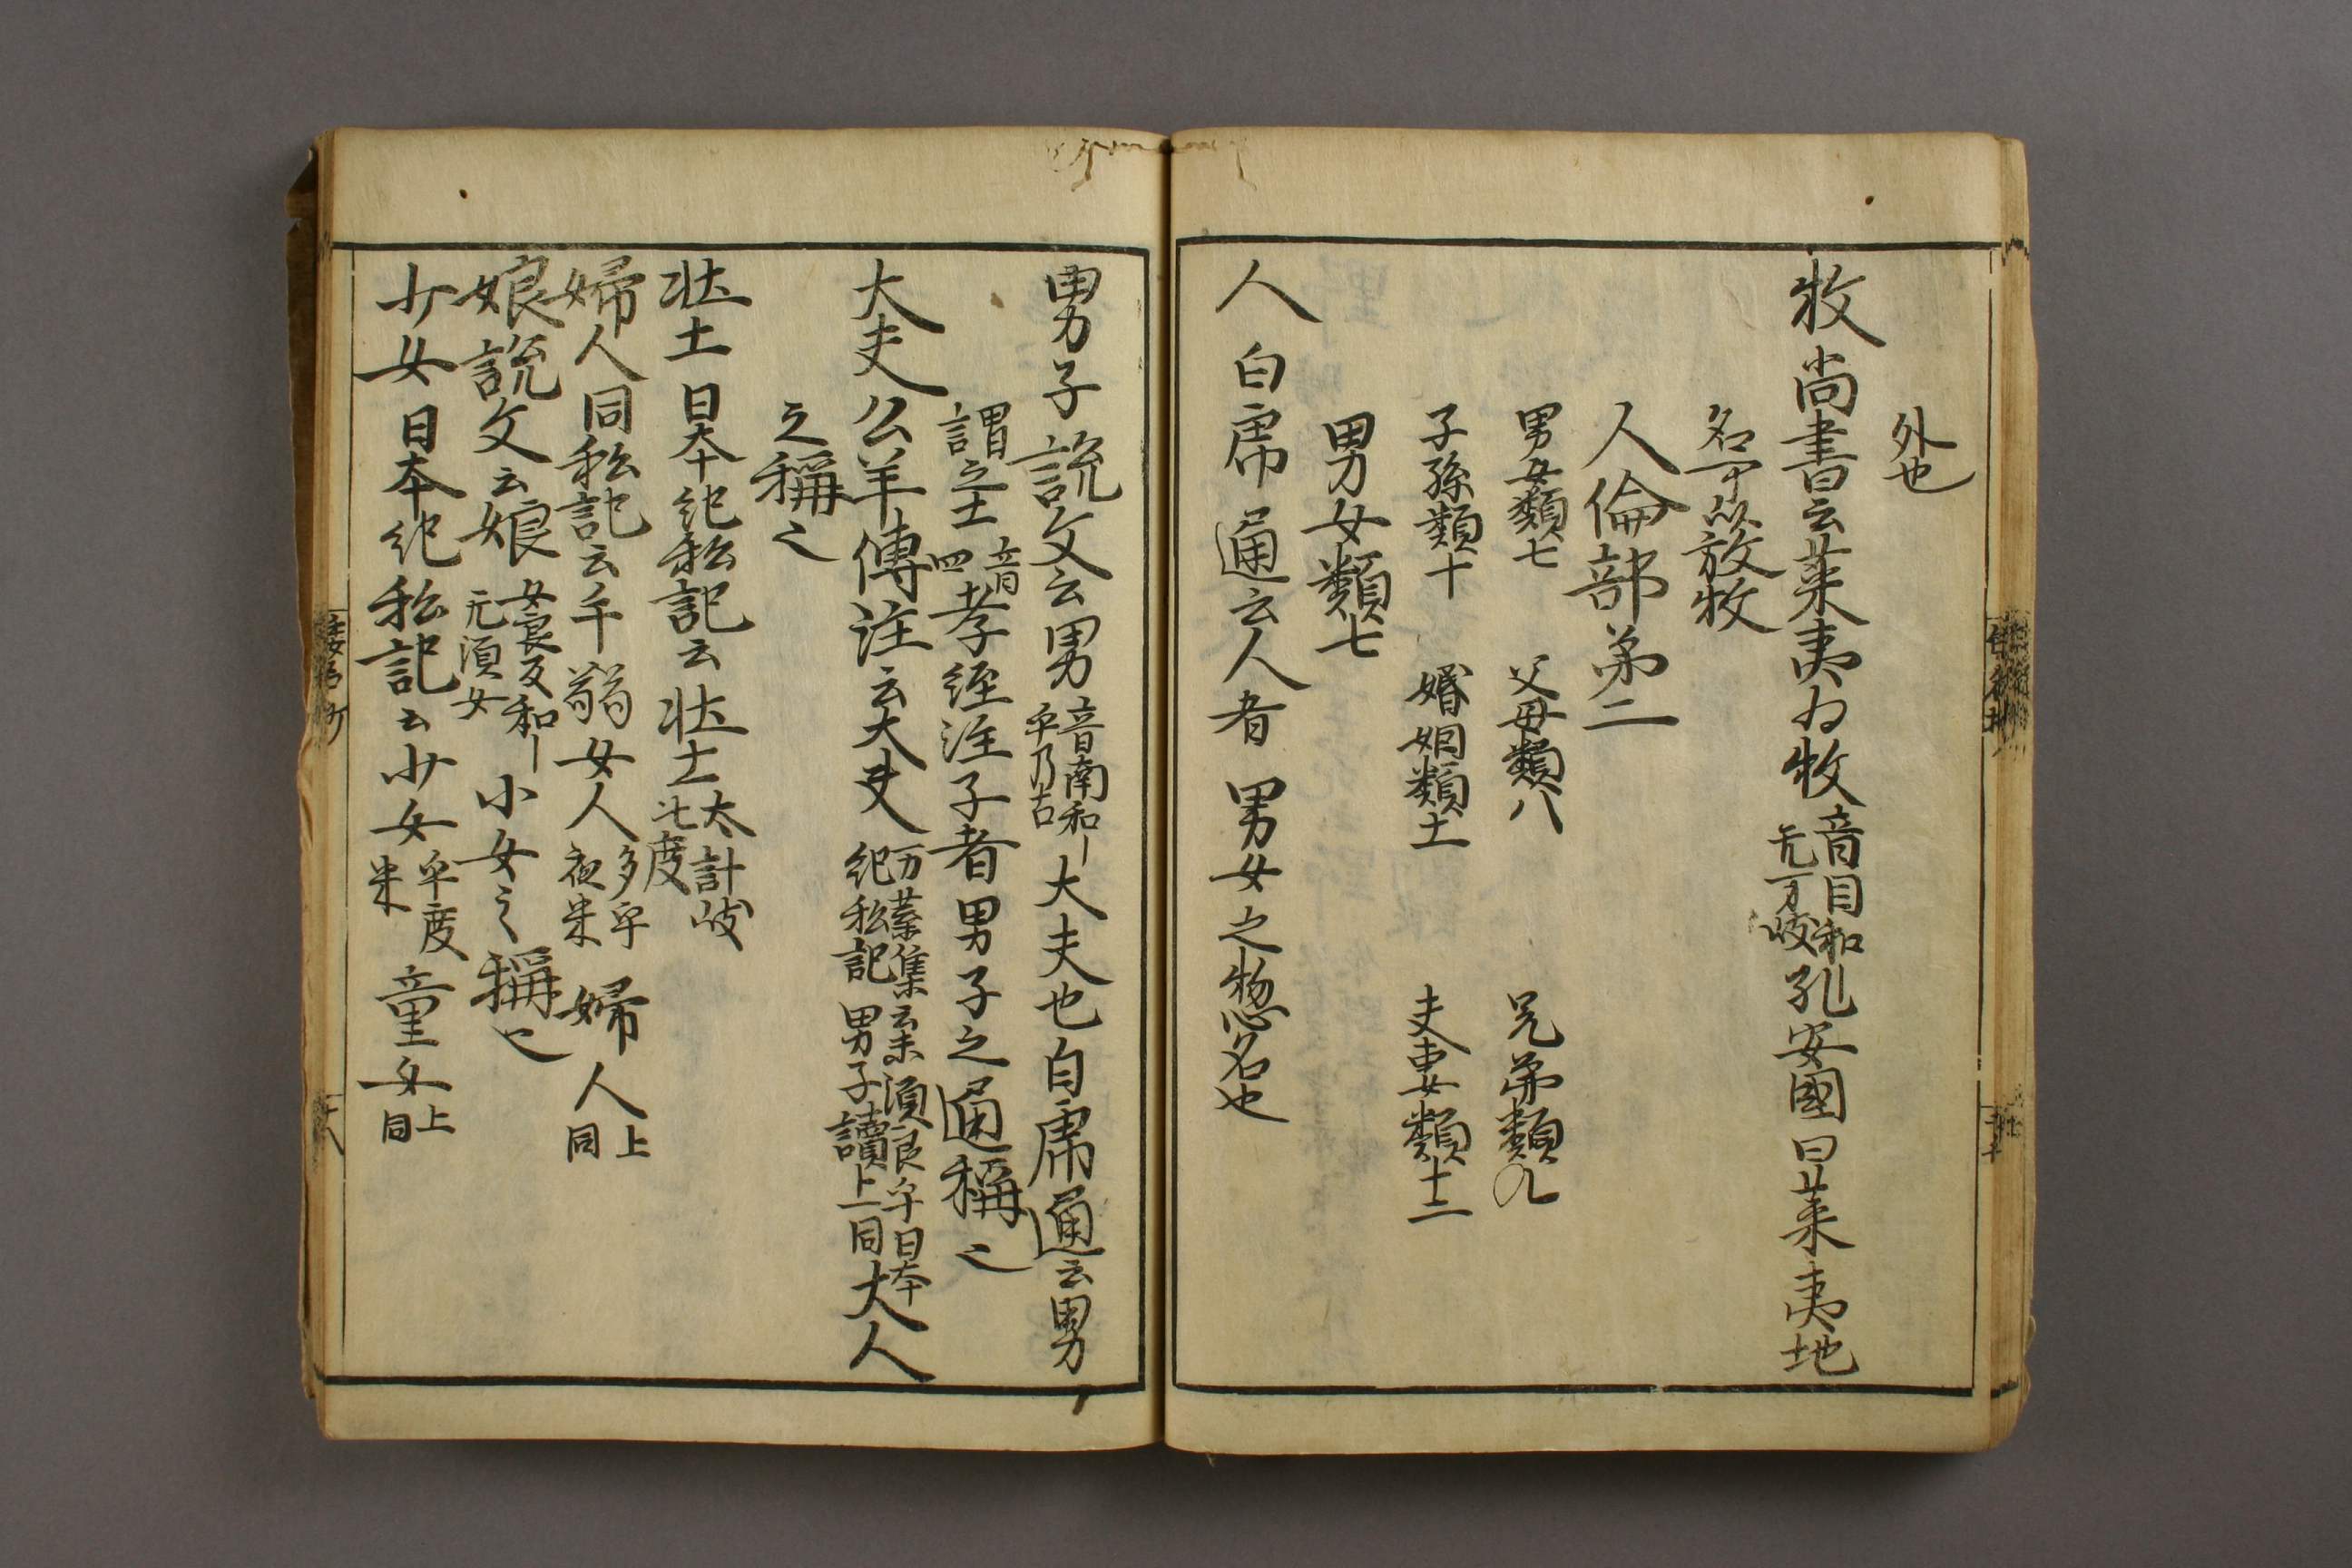 外也
牧 尚書云萊夷為牧 音目和 无万岐 孔安國曰萊夷地
名可以放牧
人倫部第二
男女類七 父母類八 兄弟類九
子孫類十 婚姻類十一 夫妻類十二
男女類七
人 白虎通云人者男女之惣名也
男子 說文云男 音南和一 乎乃古 大夫也白虎通云男
謂之士 音四 孝經注子者男子之通稱也
大夫 公羊傳注云大夫 万葉集云末須良乎日本 紀私記男子讀上同 大人
之稱也
壮士 日本紀私記云壮士 太計岐 比度
婦人 同私記云手弱女人 多乎 夜米 婦人 上同
娘 說文云娘 女良反和一 无須女 小女之稱也
少女 日本紀私記云少女 乎度 米 童女 上同